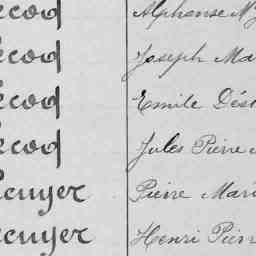 ecoq Alphonse M
ecoq Joseph Ma
ecoq Emile Dés
ecoq Jules Pierre
ecuyer Pierre Mari
ecuyer Henri Pier